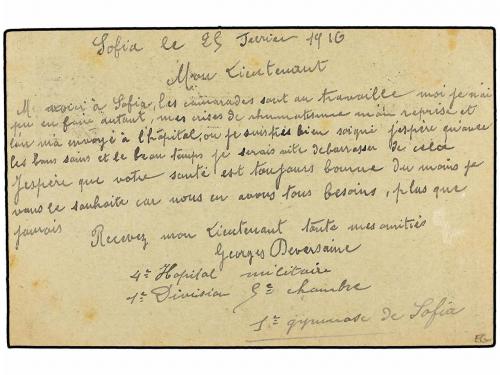 Sofia le 25 Fevrier 1916
Mon Lieutenant
M voici à Sofia, les camarades sont au travaille moi je n'ai
pu en faire autant, mes crises de rhumatisme m'on reprise et
l'on m'a envoyé à l'hôpital, ou je suis très bien soigné j'espère qu'avec
les bons soins et le beau temps je serais vite debarasser de cela
J'espère que votre santé est toujours bonne du moins je
vous le souhaite car nous en avons tous besoins, plus que
jamais
Recevez mon Lieutenant toute mes amitiés
Georges Deversaine
4e Hopital militaire
1e Division 5e chambre
1e gymnase de Sofia